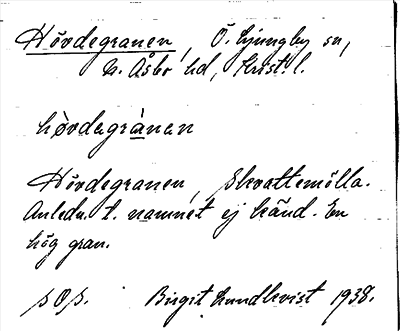 Hövdegranen, Ö. Ljungby sn,
N. Åsbo hd, Krist. l.
hövdagrànen
Hövdegranen, Skvattemölla.
Anledn. t. namnet ej känd. En
hög gran.
Birgit Lundkvist 1938.